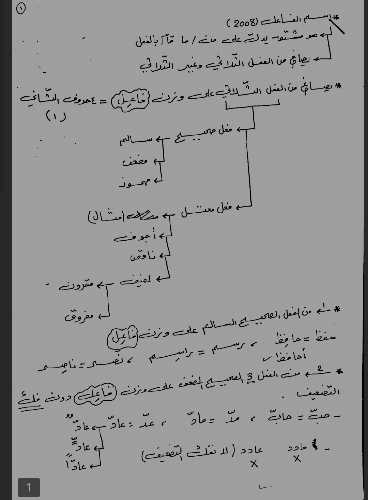 ١
* اسم الفاعل (2008)
هو مشتق يدل على من / ما قام بالفعل
يصاغ من الفعل الثلاثي وغير الثلاثي
* يصاغ من الفعل الثلاثي على وزن فاعل = حروف الثاني
(١)
فعل صحيح ← سالم
مضعف
مهموز
فعل معتل ← (مثال)
أجوف
ناقص
لفيف ← مقرون
مفروق
* 1- من الفعل الصحيح السالم على وزن فاعل
حفظ = حافظ ، رسم = راسم ، نصر = ناصر
أحافظ
* 2- من الفعل الصحيح المضعف على وزن فاعل دون فك
التضعيف.
- حبّ = حابّ ، مدّ = مادّ ، عدّ = عادّ ← عادٌّ
عادٍّ
عادًّا
- مادد عادد (لا نفك التضعيف)
x x
1